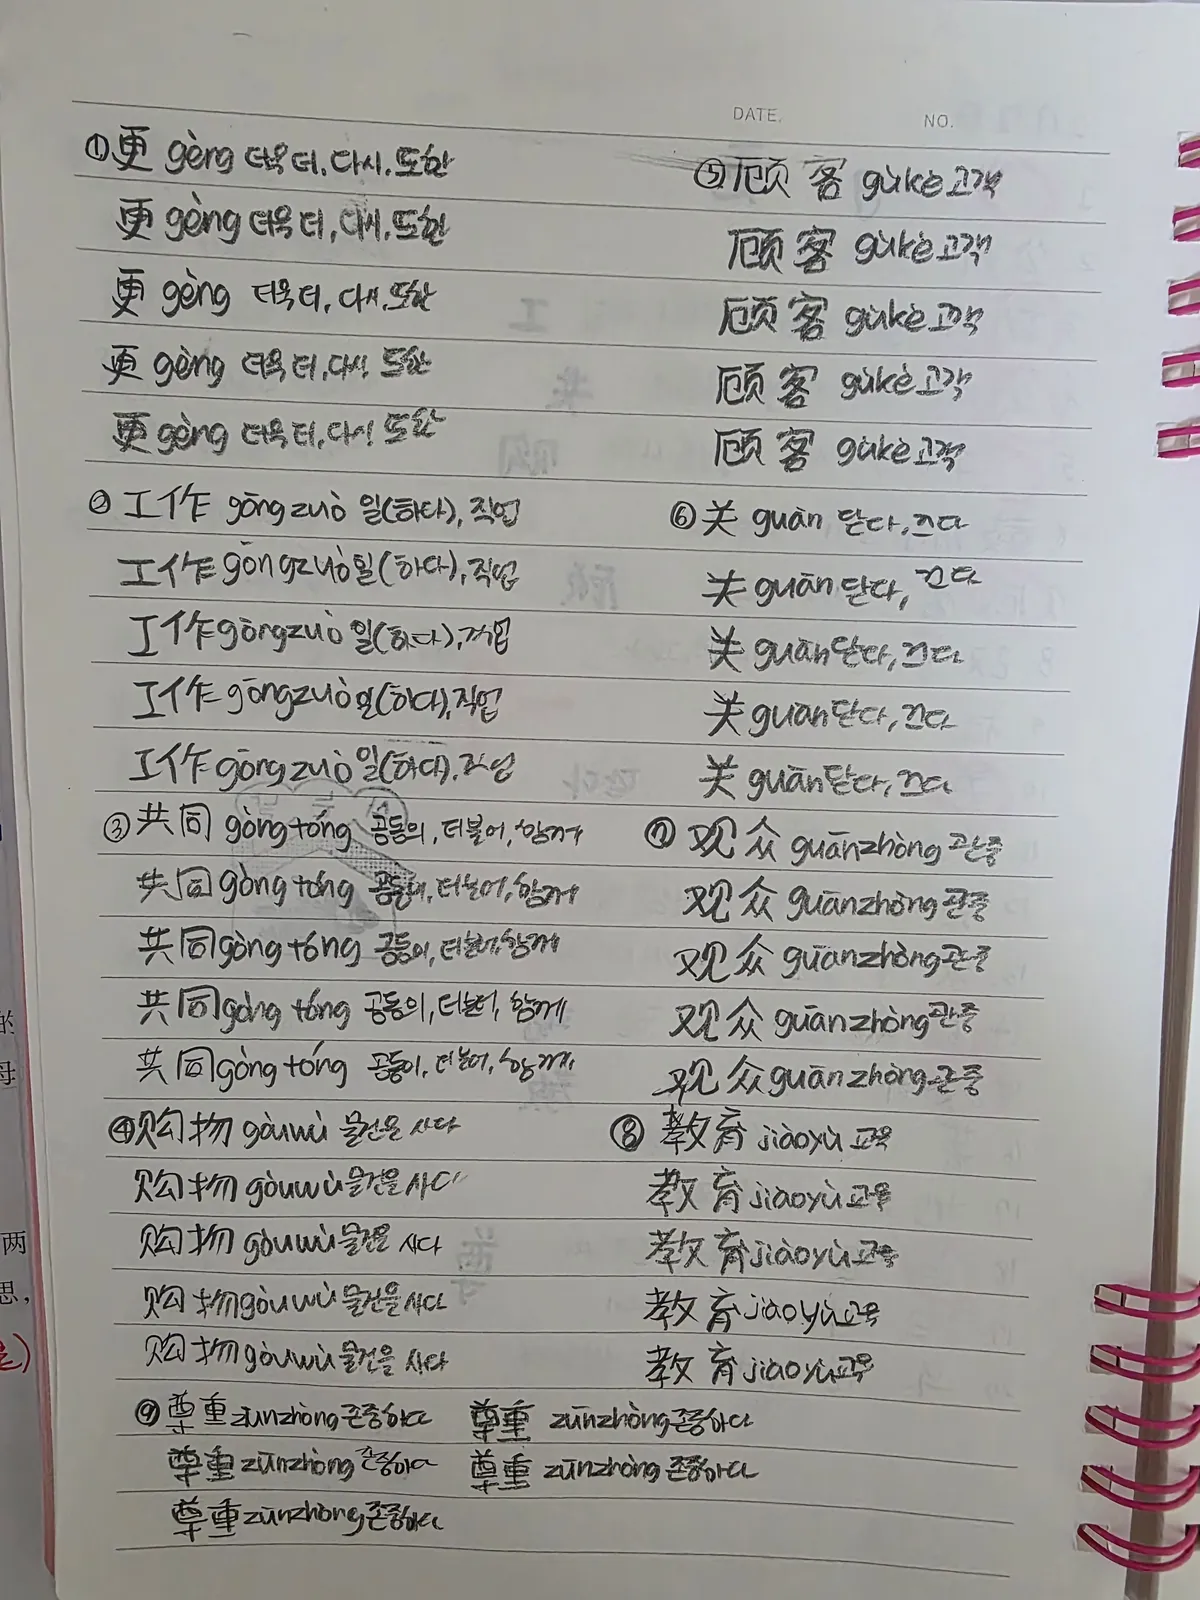 DATE. NO.
① 更 gèng 더욱 더, 다시, 또한
更 gèng 더욱 더, 다시, 또한
更 gèng 더욱 더, 다시, 또한
更 gèng 더욱 더, 다시, 또한
更 gèng 더욱 더, 다시, 또한
② 工作 gōngzuò 일(하다), 직업
工作 gōngzuò 일(하다), 직업
工作 gōngzuò 일(하다), 직업
工作 gōngzuò 일(하다), 직업
工作 gōngzuò 일(하다), 직업
③ 共同 gòngtóng 공동의, 더불어, 함께
共同 gòngtóng 공동의, 더불어, 함께
共同 gòngtóng 공동의, 더불어, 함께
共同 gòngtóng 공동의, 더불어, 함께
共同 gòngtóng 공동의, 더불어, 함께
④ 购物 gòuwù 물건을 사다
购物 gòuwù 물건을 사다
购物 gòuwù 물건을 사다
购物 gòuwù 물건을 사다
购物 gòuwù 물건을 사다
⑤ 顾客 gùkè 고객
顾客 gùkè 고객
顾客 gùkè 고객
顾客 gùkè 고객
顾客 gùkè 고객
⑥ 关 guān 닫다, 끄다
关 guān 닫다, 끄다
关 guān 닫다, 끄다
关 guān 닫다, 끄다
关 guān 닫다, 끄다
⑦ 观众 guānzhòng 관중
观众 guānzhòng 관중
观众 guānzhòng 관중
观众 guānzhòng 관중
观众 guānzhòng 관중
⑧ 教育 jiàoyù 교육
教育 jiàoyù 교육
教育 jiàoyù 교육
教育 jiàoyù 교육
教育 jiàoyù 교육
⑨ 尊重 zūnzhòng 존중하다 尊重 zūnzhòng 존중하다
尊重 zūnzhòng 존중하다 尊重 zūnzhòng 존중하다
尊重 zūnzhòng 존중하다
的
母
两
思,